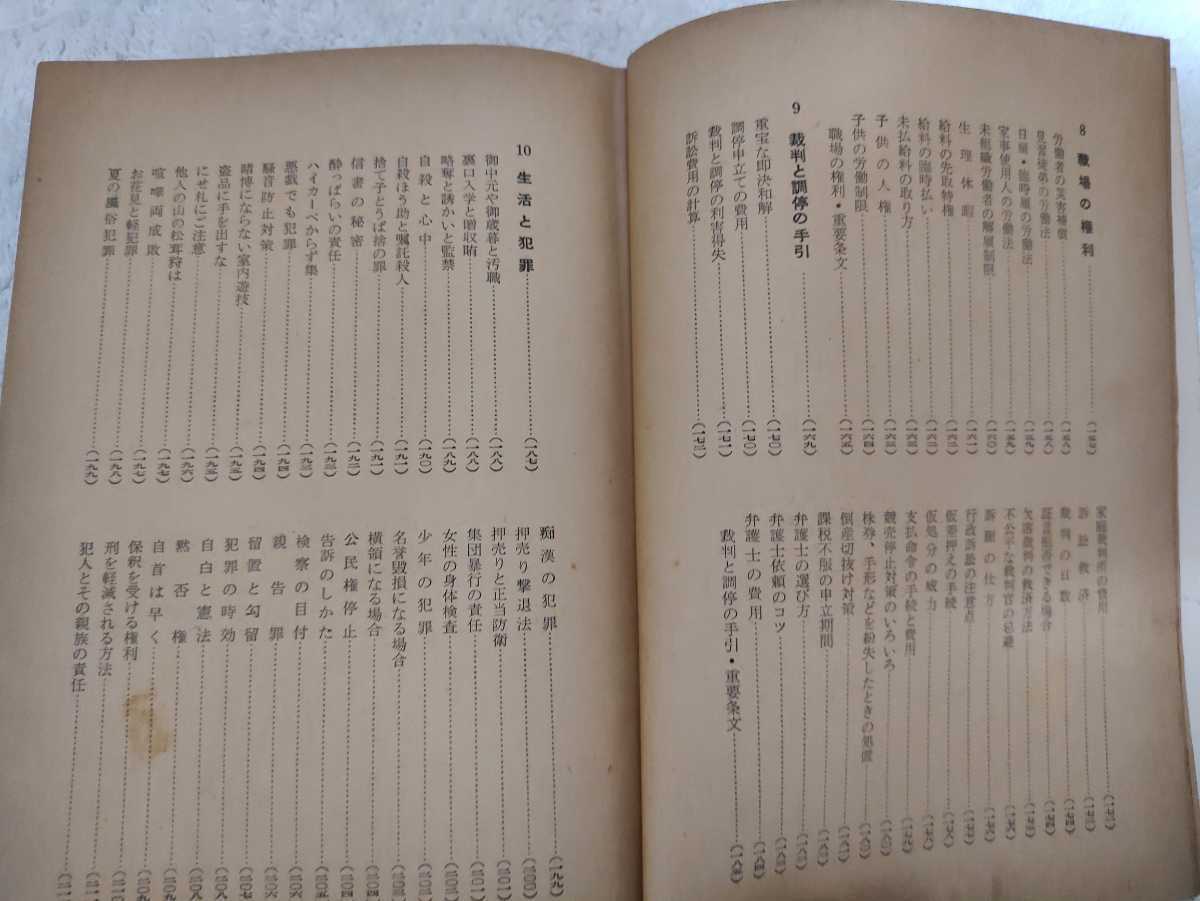 8 職場の権利……(一五七)
労働者の災害補償……(一五八)
見習徒弟の労働法……(一五八)
日雇・臨時雇の労働法……(一五九)
家事使用人の労働法……(一五九)
未組織労働者の解雇制限……(一六〇)
生理休暇……(一六一)
給料の先取特権……(一六二)
給料の臨時払い……(一六二)
未払給料の取り方……(一六三)
子供の人権……(一六三)
子供の労働制限……(一六四)
職場の権利・重要条文……(一六五)
9 裁判と調停の手引……(一六九)
重宝な即決和解……(一七〇)
調停申立ての費用……(一七〇)
裁判と調停の利害得失……(一七一)
訴訟費用の計算……(一七二)
家庭裁判所の費用……(一七三)
訴訟救済……(一七三)
裁判の日数……(一七四)
証言拒否できる場合……(一七四)
欠席裁判の救済方法……(一七五)
不公平な裁判官の忌避……(一七六)
訴願の仕方……(一七六)
行政訴訟の注意点……(一七七)
仮差押えの手続……(一七八)
仮処分の威力……(一七八)
支払命令の手続と費用……(一七九)
競売停止対策のいろいろ……(一八〇)
株券、手形などを紛失したときの処置……(一八〇)
倒産切抜け対策……(一八一)
課税不服の申立期間……(一八二)
弁護士の選び方……(一八三)
弁護士依頼のコツ……(一八三)
弁護士の費用……(一八四)
裁判と調停の手引・重要条文……(一八五)
10 生活と犯罪……(一八七)
御中元や御歳暮と汚職……(一八八)
裏口入学と贈収賄……(一八八)
略奪と誘かいと監禁……(一八九)
自殺と心中……(一九〇)
自殺ほう助と嘱託殺人……(一九一)
捨て子とうば捨の罪……(一九一)
信書の秘密……(一九二)
酔っぱらいの責任……(一九三)
ハイカーべからず集……(一九三)
悪戯でも犯罪……(一九四)
騒音防止対策……(一九四)
賭博にならない室内遊技……(一九五)
盗品に手を出すな……(一九五)
にせ札にご注意……(一九六)
他人の山の松茸狩は……(一九七)
喧嘩両成敗……(一九七)
お花見と軽犯罪……(一九八)
夏の風俗犯罪……(一九九)
痴漢の犯罪……(一九九)
押売り撃退法……(二〇〇)
押売りと正当防衛……(二〇一)
集団暴行の責任……(二〇一)
女性の身体検査
少年の犯罪
名誉毀損になる場合
横領になる場合
公民権停止
告訴のしかた
検察の目付
親告罪
留置と勾留
犯罪の時効
自白と憲法
黙否権
自首は早く
保釈を受ける権利
刑を軽減される方法
犯人とその親族の責任